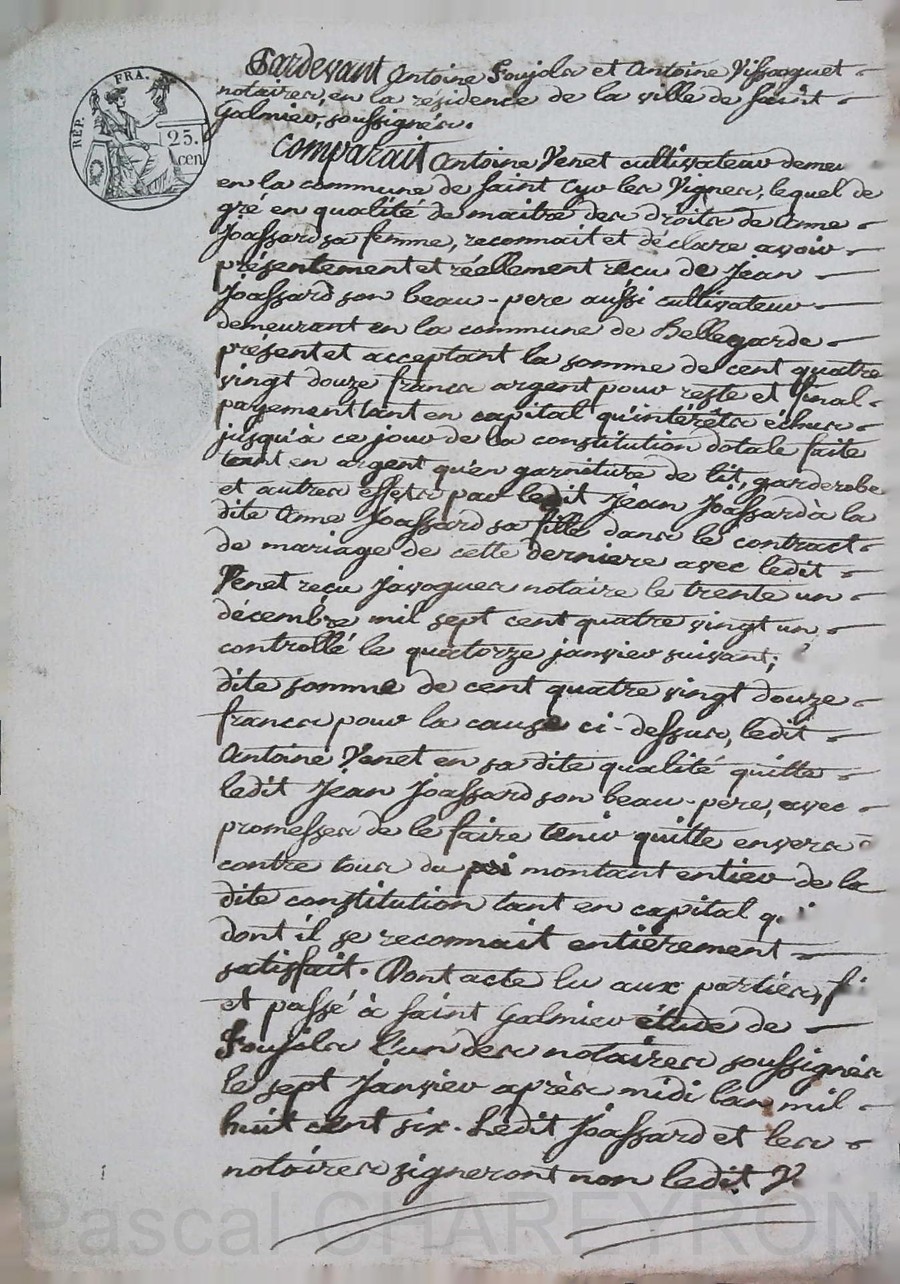 RÉP. FRA.
25.
cen
Pardevant Antoine Foujols et Antoine Vissaguet
notaires, en la résidence de la ville de saint
Galmier, soussignés.
Comparait Antoine Venet cultivateur demeu
en la commune de saint Cyr les Vignes, lequel de
gré en qualité de maitre des droits de Anne
Joassard sa femme, reconnait et déclare avoir
présentement et réellement reçu de Jean
Joassard son beau-pere aussi cultivateur
demeurant en la commune de Bellegarde
présent et acceptant la somme de cent quatre
vingt douze francs argent pour reste et final
payement tant en capital qu'intérêts échus
jusqu'à ce jour de la constitution dotale faite
tant en argent qu'en garniture de lit, garderobe
et autres effets par ledit Jean Joassard à la
dite Anne Joassard sa fille dans le contract
de mariage de cette derniere avec ledit
Venet reçu Javogues notaire le trente un
décembre mil sept cent quatre vingt un
controllé le quatorze janvier suivant;
dite somme de cent quatre vingt douze
francs pour la cause ci-dessus, ledit
Antoine Venet en sa dite qualité quitte
ledit Jean Joassard son beau-pere, avec
promesses de le faire tenir quitte envers
contre tous du montant entier de la
dite constitution tant en capital q
dont il se reconnait entièrement
satisfait. Dont acte lu aux parties, f
et passé à saint Galmier étude de
Foujols l'un des notaires soussignés
le sept Janvier après midi l'an mil
huit cent six. Ledit Joassard et les
notaires signeront non ledit V.
Pascal CHAREYRON